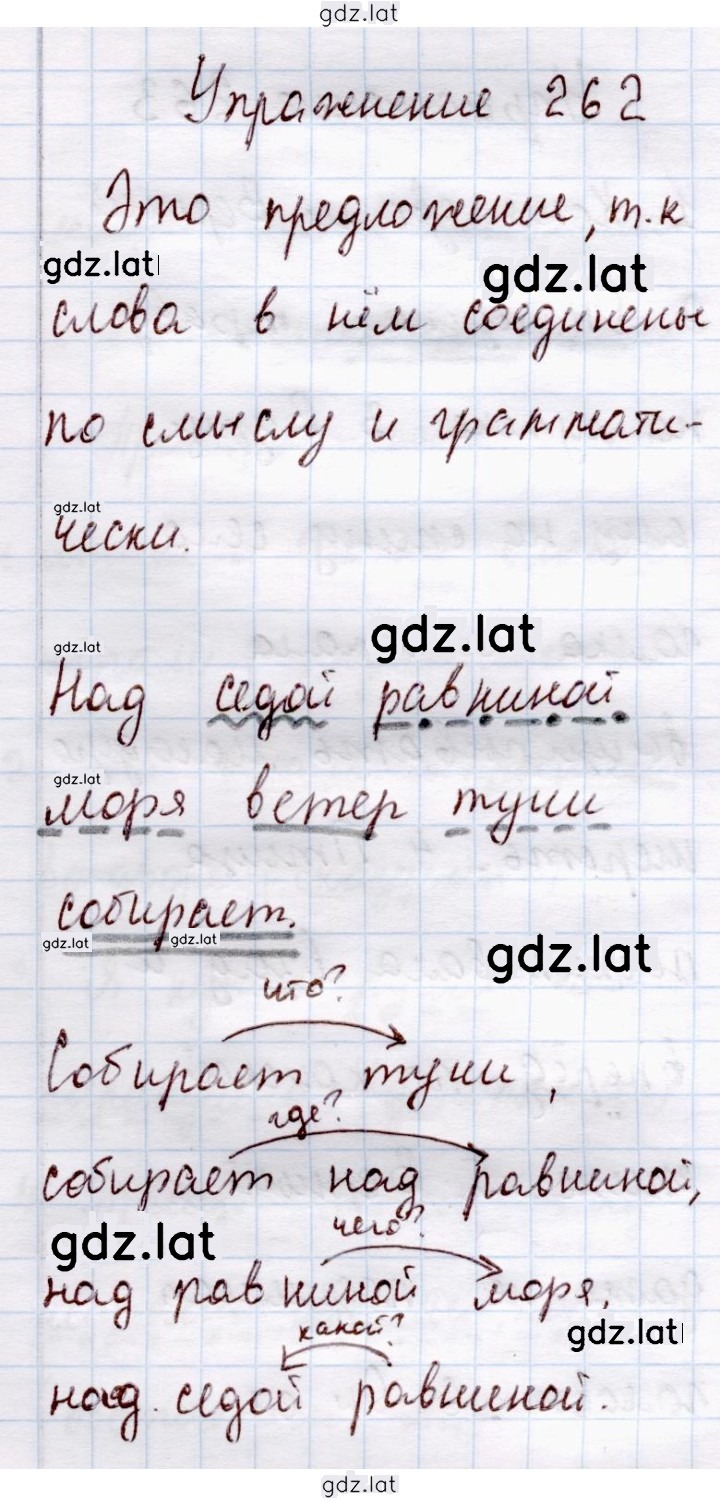 gdz.lat
Упражнение 262
Это предложение, т.к
gdz.lat gdz.lat
слова в нём соединены
по смыслу и граммати-
gdz.lat
чески.
gdz.lat gdz.lat
Над седой равниной
gdz.lat
моря ветер тучи
собирает.
gdz.lat gdz.lat gdz.lat
что?
Собирает тучи,
где?
собирает над равниной,
gdz.lat
чего?
над равниной моря,
gdz.lat
какой?
над седой равниной.
gdz.lat